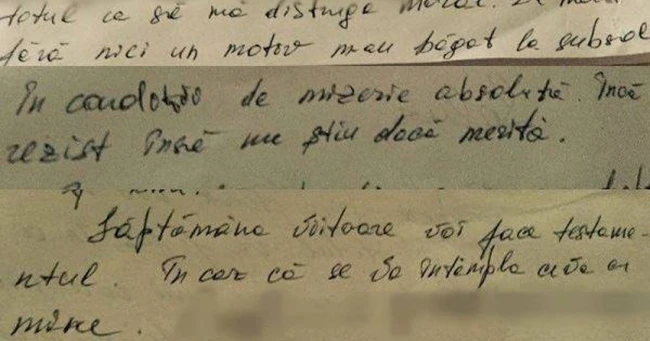 totul ca să mă distrugă moral. De mai
fără nici un motiv m-au băgat la subsol
În condiții de mizerie absolută. Încă
rezist însă nu știu dacă merită.
Săptămâna viitoare voi face testame-
ntul. În caz că se va întâmpla ceva cu
mine.